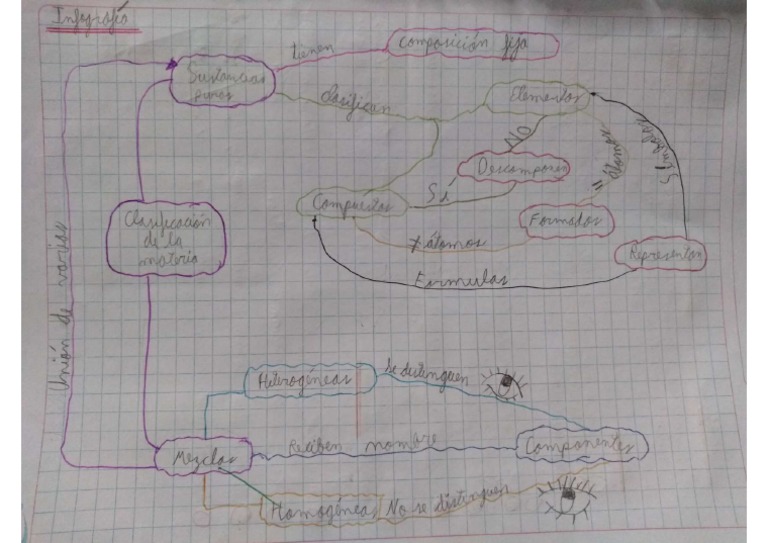 Infografía
Composición fija
tienen
Sustancias
puras
Clasifican
Elementos
No
Descomponen
= átomos
Símbolos
Sí
Compuestos
Clasificación
de la
materia
Formados
≠ átomos
Representan
Formulas
Unión de varias
Heterogéneas
Se distinguen
Mezclas
Reciben nombre
Componentes
Homogéneas
No se distinguen